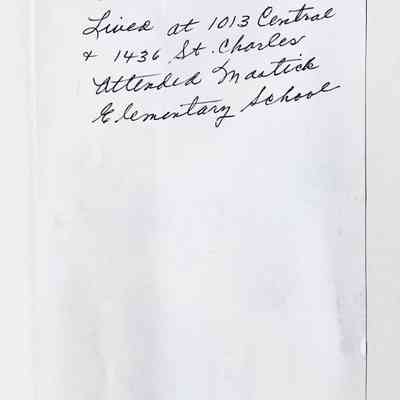 Lived at 1013 Central
& 1436 St. Charles
Attended Mastick
Elementary School